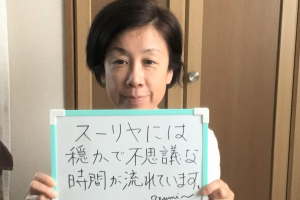 スーリヤには
穏かで不思議な
時間が流れています。
azumi〜